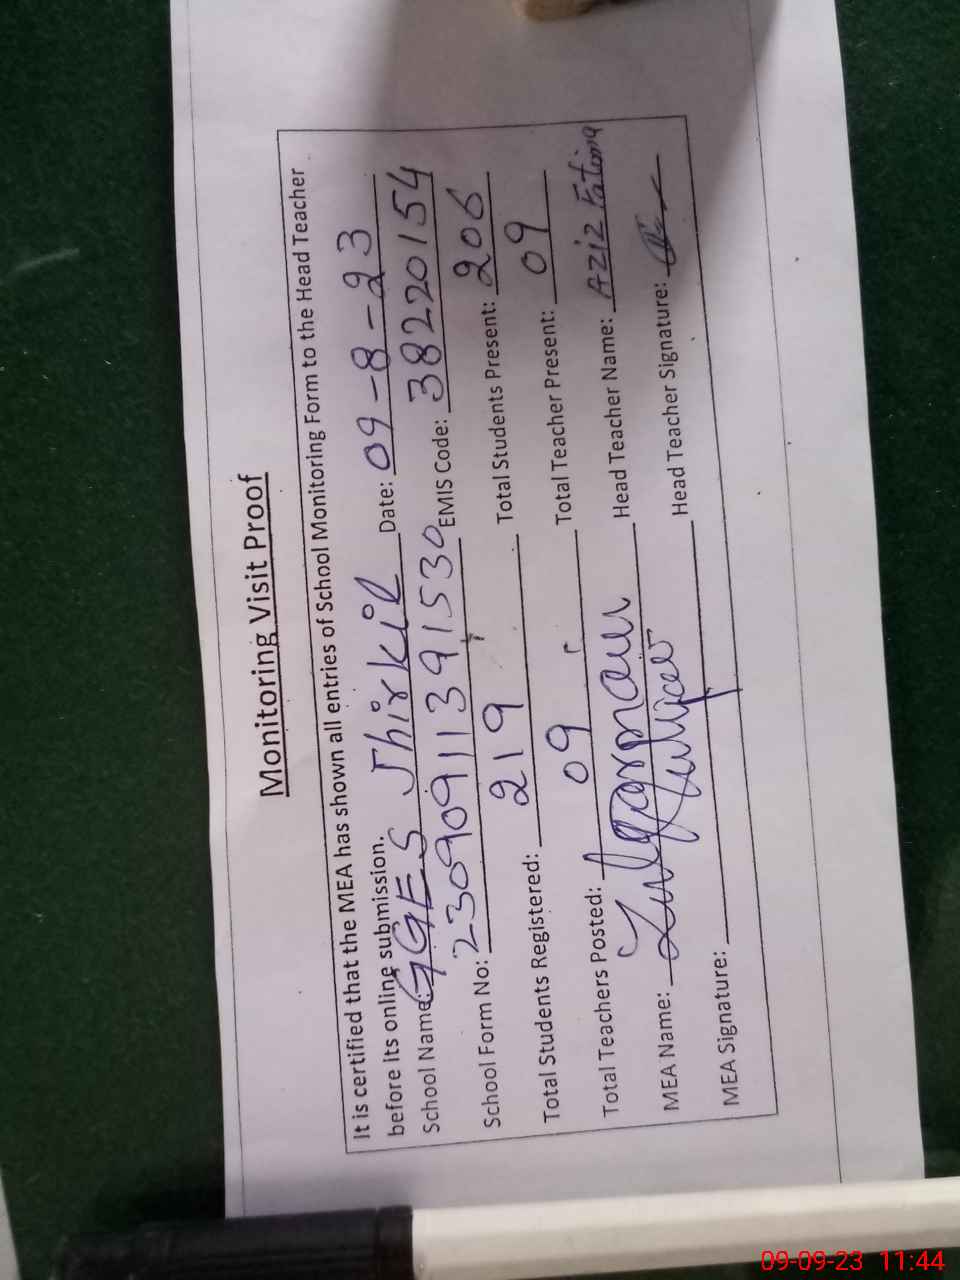 Monitoring Visit Proof
It is certified that the MEA has shown all entries of School Monitoring Form to the Head Teacher
before its online submission.
School Name: GGES Jhirkil Date: 09-8-23
School Form No: 2309091139 1530 EMIS Code: 38220154
Total Students Registered: 219 Total Students Present: 206
Total Teachers Posted: 09 Total Teacher Present: 09
MEA Name: Head Teacher Name: Aziz Fatima
MEA Signature: Head Teacher Signature:
09-09-23 11:44